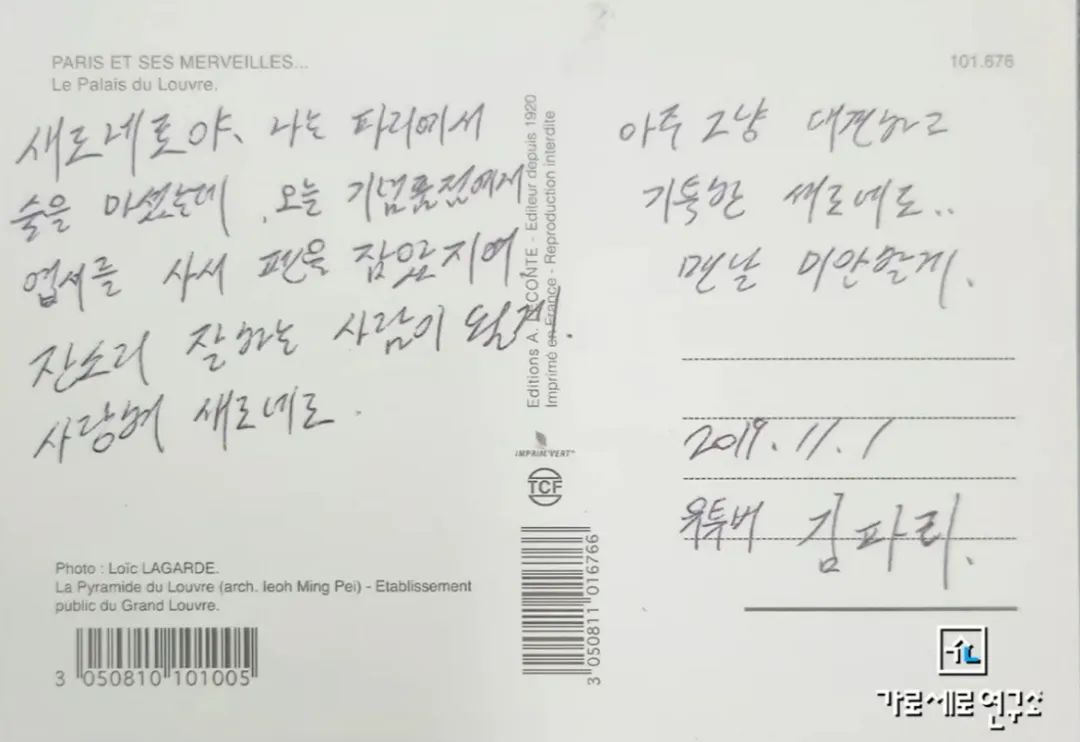 PARIS ET SES MERVEILLES...
Le Palais du Louvre.
101.676
새로네로야, 나는 파리에서
술을 마셨는데, 오는 기념품점에게
엽서를 사서 펜을 잡았지여.
잔소리 잘하는 사람이 될게.
사랑해 새로네로.
아주 그냥 대견하고
기특한 새로네로..
맨날 미안할게.
2019. 11. 1
유투버 김파리.
Editions A. LECONTE - Editeur depuis 1920
Imprimé en France - Reproduction interdite
IMPRIM'VERT®
TCF
3 050811 016766
Photo : Loïc LAGARDE.
La Pyramide du Louvre (arch. Ieoh Ming Pei) - Etablissement
public du Grand Louvre.
3 050810 101005
가로세로연구소